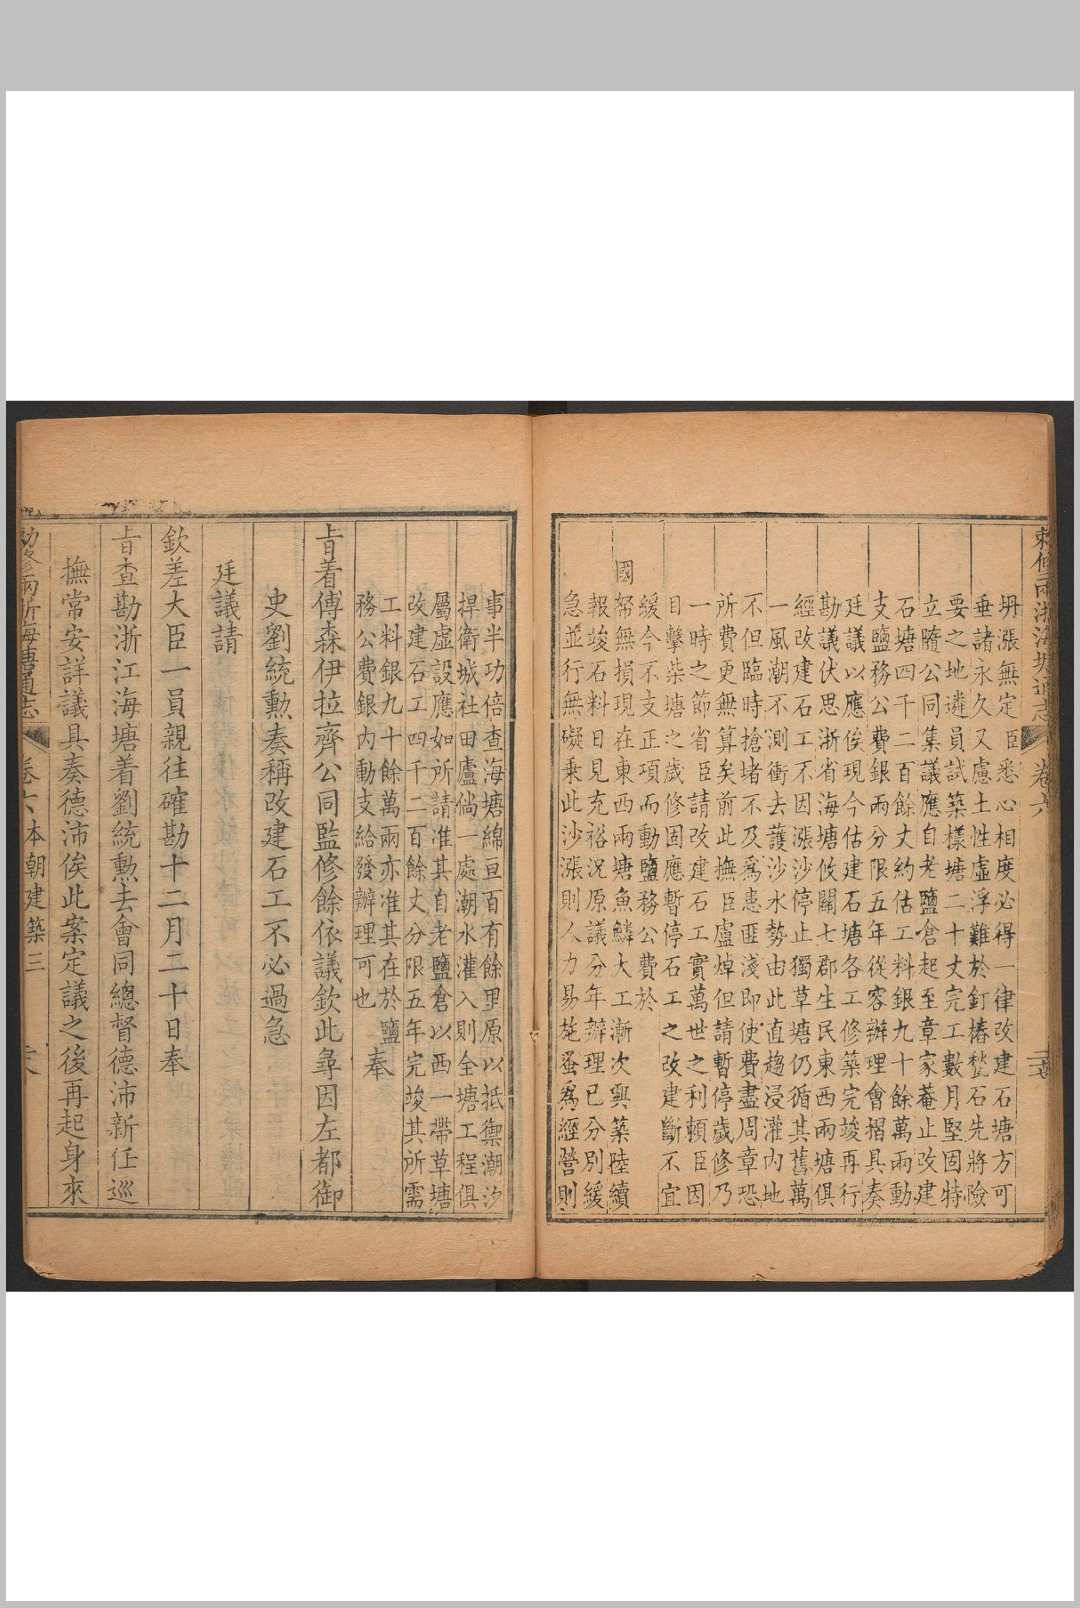 敕修兩浙海塘通志 卷六
坍漲無定臣悉心相度必得一律改建石塘方可
垂諸永久又慮土性虛浮難於釘樁墊石先將險
要之地遴員試築樣塘二十丈完工數月堅固特
立隨公同集議應自老鹽倉起至章家菴止改建
石塘四千二百餘丈約估工料銀九十餘萬兩動
支鹽務公費銀兩分限五年從容辦理會摺具奏
廷議以應俟現今估建石塘各工修築完竣再行
勘議伏思浙省海塘攸關七郡生民東西兩塘俱
經改建石工不因漲沙停止獨草塘仍循其舊萬
一風潮不測衝去護沙水勢由此直趨浸灌內地
不但臨時搶堵不及為患匪淺即使費盡周章恐
所費更無算矣前此撫臣盧焯但請暫停歲修乃
一時之節省臣請改建石工實萬世之利賴臣因
目擊柴塘之歲修固應暫停石工之改建斷不宜
緩今不支正項而動鹽務公費於
國
帑無損現在東西兩塘魚鱗大工漸次興築陸續
報竣石料日見充裕況原議分年辦理已分別緩
急並行無礙乘此沙漲則人力易施蚤為經營則
事半功倍查海塘綿亘百有餘里原以抵禦潮汐
捍衛城社田廬倘一處潮水灌入則全塘工程俱
屬虛設應如所請准其自老鹽倉以西一帶草塘
改建石工四千二百餘丈分限五年完竣其所需
工料銀九十餘萬兩亦准其在於鹽
務公費銀內動支給發辦理可也 奉
旨着傅森伊拉齊公同監修餘依議欽此尋因左都御
史劉統勲奏稱改建石工不必過急
廷議請
欽差大臣一員親往確勘十二月二十日奉
旨查勘浙江海塘着劉統勲去會同總督德沛新任巡
撫常安詳議具奏德沛俟此案定議之後再起身來
勅修兩浙海塘通志 卷六 本朝建築三